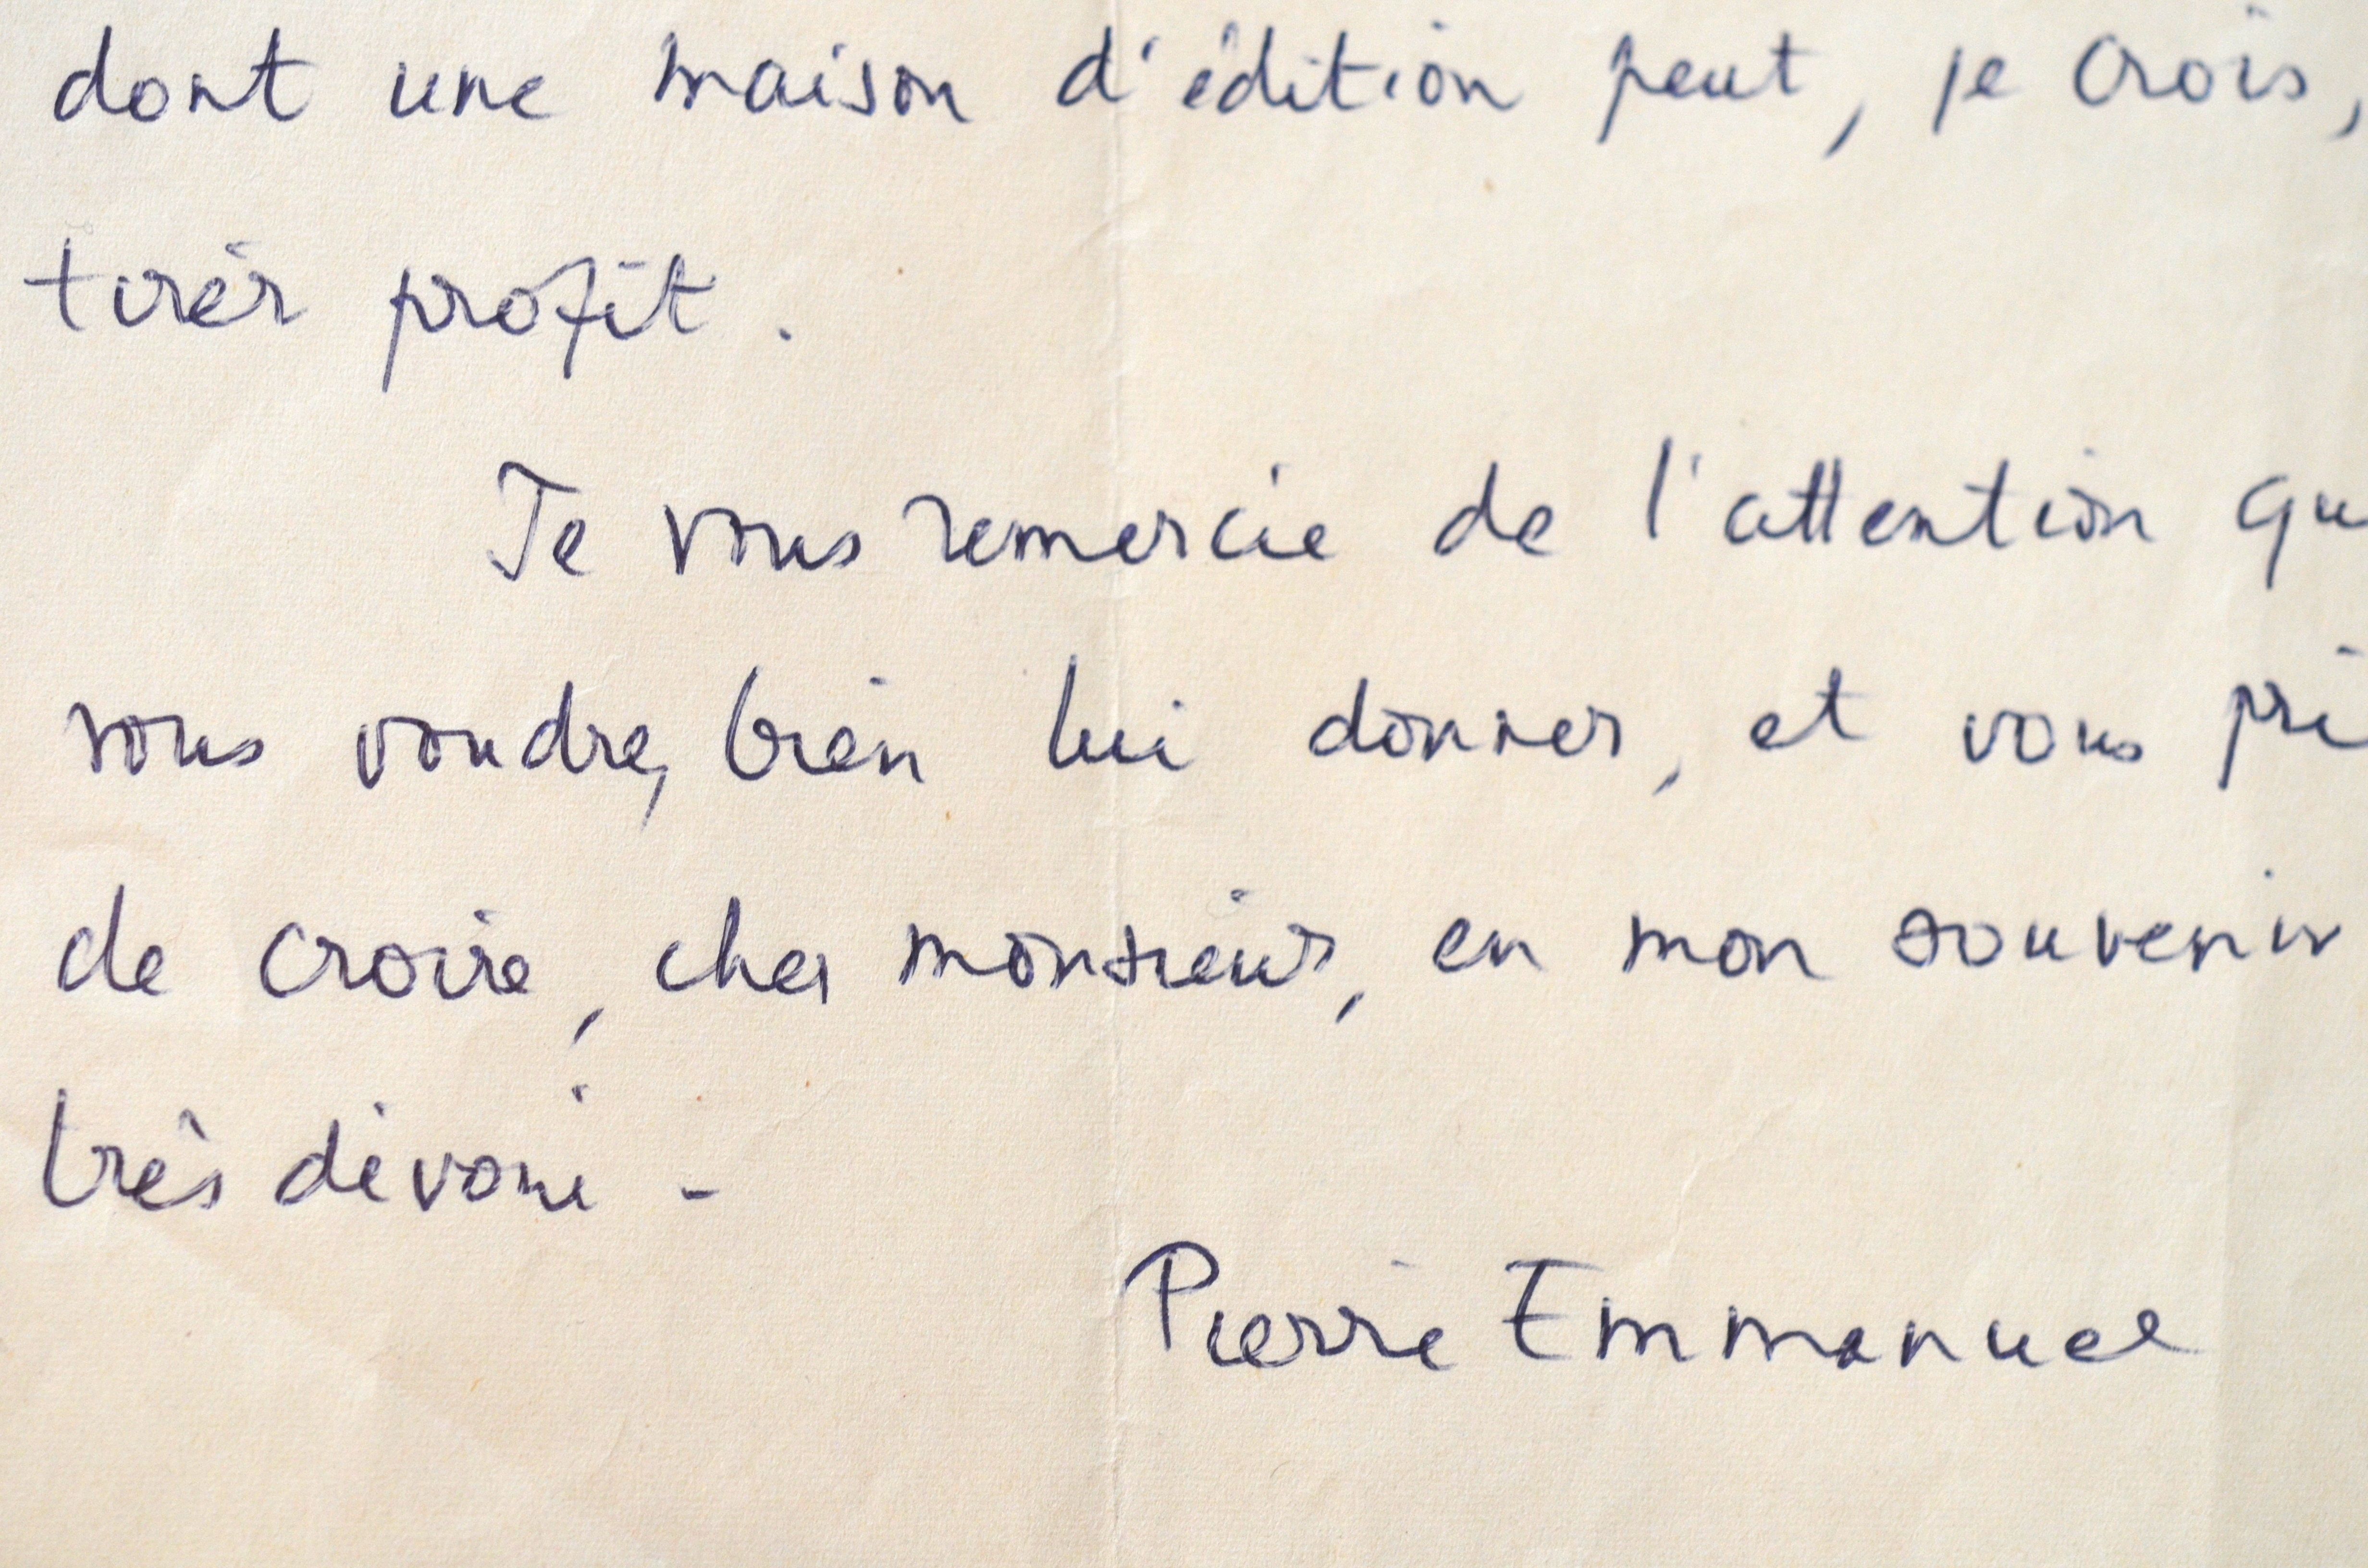 dont une maison d'édition peut, je crois,
tirer profit.
Je vous remercie de l'attention qu
vous voudrez bien lui donner, et vous pri
de croire, cher monsieur, en mon souvenir
très dévoué -
Pierre Emmanuel